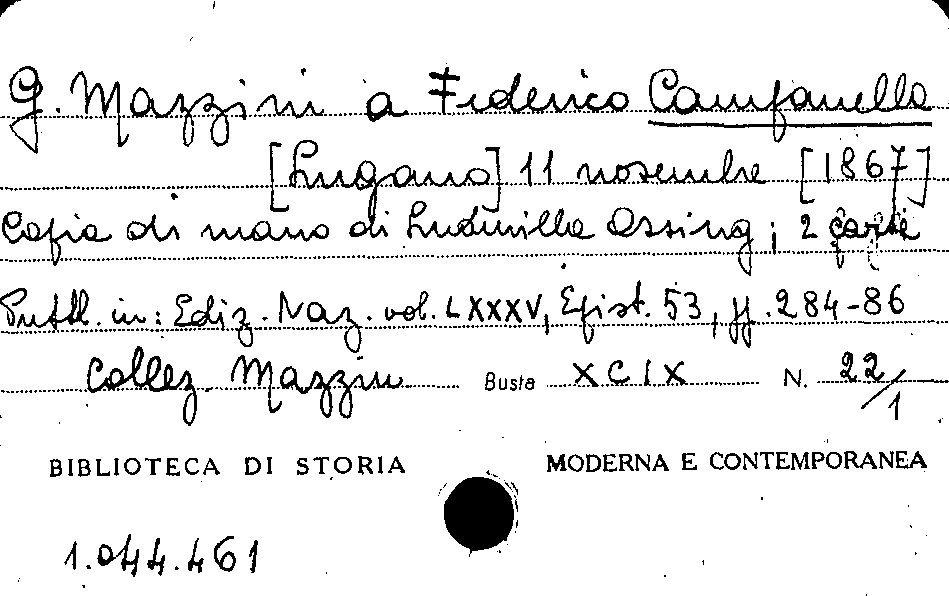 G. Mazzini a Federico Campanella
[Lugano] 11 novembre [1867]
Copia di mano di Ludmilla Assing; 2 carte
Pubbl. in: Ediz. Naz. vol. LXXXV, Epist. 53, pp. 284-86
Collez. Mazzini Busta XCIX N. 22/1
BIBLIOTECA DI STORIA MODERNA E CONTEMPORANEA
1.044.461